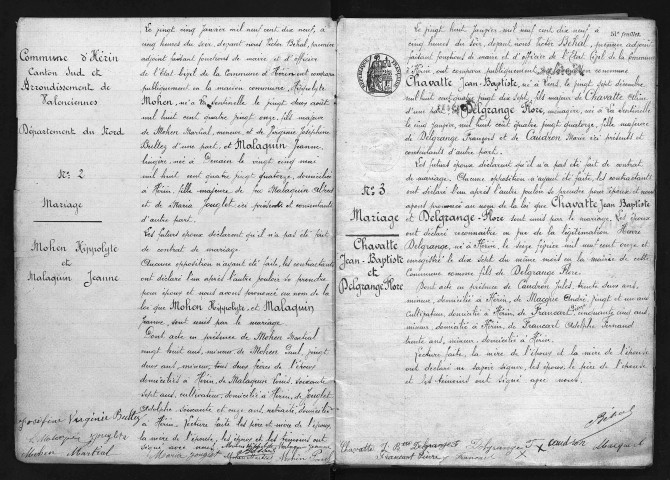 Commune d'Hérin
Canton Sud et
Arrondissement de
Valenciennes
Département du Nord
N° 2
Mariage
Mohen Hippolyte
et
Malaquin Jeanne
Le vingt cinq Janvier mil neuf cent dix neuf, à
cinq heures du soir, devant nous Victor Béhal, premier
adjoint faisant fonctions de maire et d'officier
de l'Etat Civil de la Commune d'Hérin ont comparu
publiquement en la maison commune, Hippolyte
Mohen, né à la Sentinelle le vingt deux août
mil huit cent quatre vingt onze, fils majeur
de Mohen Martial, mineur, et de Virginie Joséphine
Bultez d'une part, et Malaquin Jeanne,
née à Denain le vingt cinq mai
mil huit cent quatre vingt quatorze, domiciliée
à Hérin, fille majeure de feu Malaquin
et de Maria Jouglet ici présente et consentante
d'autre part.
Les futurs époux déclarent qu'il n'a pas été fait
de contrat de mariage.
Aucune opposition n'ayant été faite, les contractants
ont déclaré l'un après l'autre vouloir se prendre
pour époux et nous avons prononcé au nom de la
loi que Mohen Hippolyte et Malaquin
Jeanne sont unis par le mariage.
Dont acte en présence de Mohen Martial
vingt huit ans, mineur, de Mohen Paul, vingt
deux ans, mineur, tous deux frères de l'époux
domiciliés à Hérin, de Malaquin Louis, soixante
sept ans, cultivateur, domicilié à Hérin, de Jouglet
Adolphe soixante et onze ans, retraité, domicilié
à Hérin. Lecture faite les père et mère de l'époux,
la mère de l'épouse, les époux et les témoins ont
signé avec nous
Joséphine Virginie Bultez
Mohen Martial
Maria Jouglet
Le vingt huit Janvier mil neuf cent dix neuf, à
cinq heures du soir, devant nous Victor Béhal, premier adjoint
faisant fonctions de maire et d'officier de l'Etat Civil de la Commune
d'Hérin, ont comparu publiquement en la maison commune
Chavatte Jean-Baptiste, né à le vingt sept décembre
mil huit cent quatre vingt dix sept, fils majeur de Chavatte
d'une part, et Delgrange Flore, née à la Sentinelle
le cinq Janvier, mil huit cent quatre vingt quatorze, fille majeure
de Delgrange François et de Caudron Marie ici présents et
consentants d'autre part.
Les futurs époux déclarent qu'il n'a pas été fait de contrat
de mariage. Aucune opposition n'ayant été faite, les contractants
ont déclaré l'un après l'autre vouloir se prendre pour époux et nous avons
prononcé au nom de la loi que Chavatte Jean Baptiste
et Delgrange Flore sont unis par le mariage. Les époux
ont déclaré reconnaître en vue de la légitimation Henri
Delgrange, né à Hérin, le seize février mil neuf cent onze et
enregistré le dix sept du même mois en la mairie de cette
Commune comme fils de Delgrange Flore.
Dont acte en présence de Caudron Jules, trente deux ans,
mineur, domicilié à Hérin, de Macquet André, vingt et un ans
cultivateur, domicilié à Hérin, de cinquante ans,
mineur, domicilié à Hérin, de Adolphe Fernand
trente ans, mineur, domicilié à Hérin.
Lecture faite, la mère de l'époux et la mère de l'épouse
ont déclaré ne savoir signer, les époux, le père de l'épouse
et les témoins ont signé avec nous.
N° 3
Mariage
Chavatte
Jean-Baptiste
et
Delgrange Flore
Béhal
Chavatte J. Bte Delgrange F Delgrange F Caudron Macquet